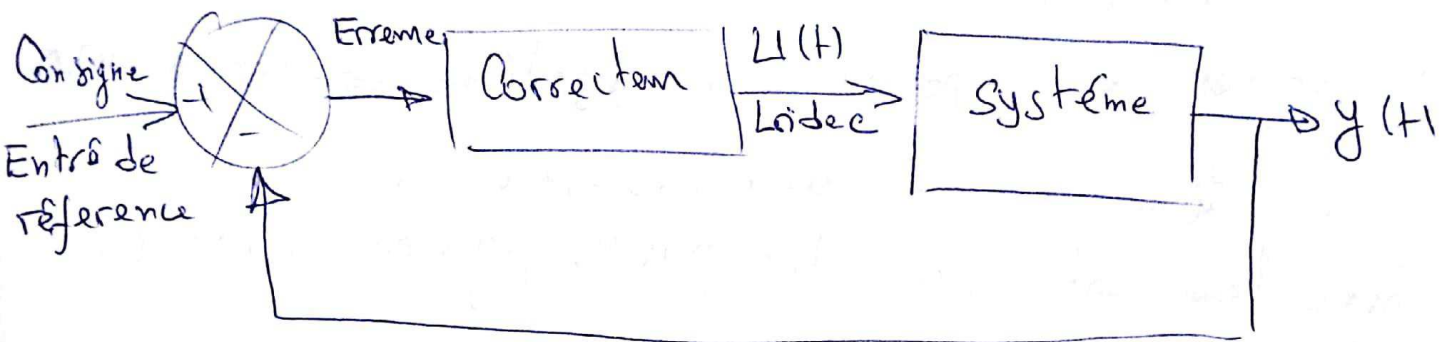 Consigne
Entrô de
réference
+
-
Erreme
Correcteur
U(t)
Loi de c
Systéme
y(t)